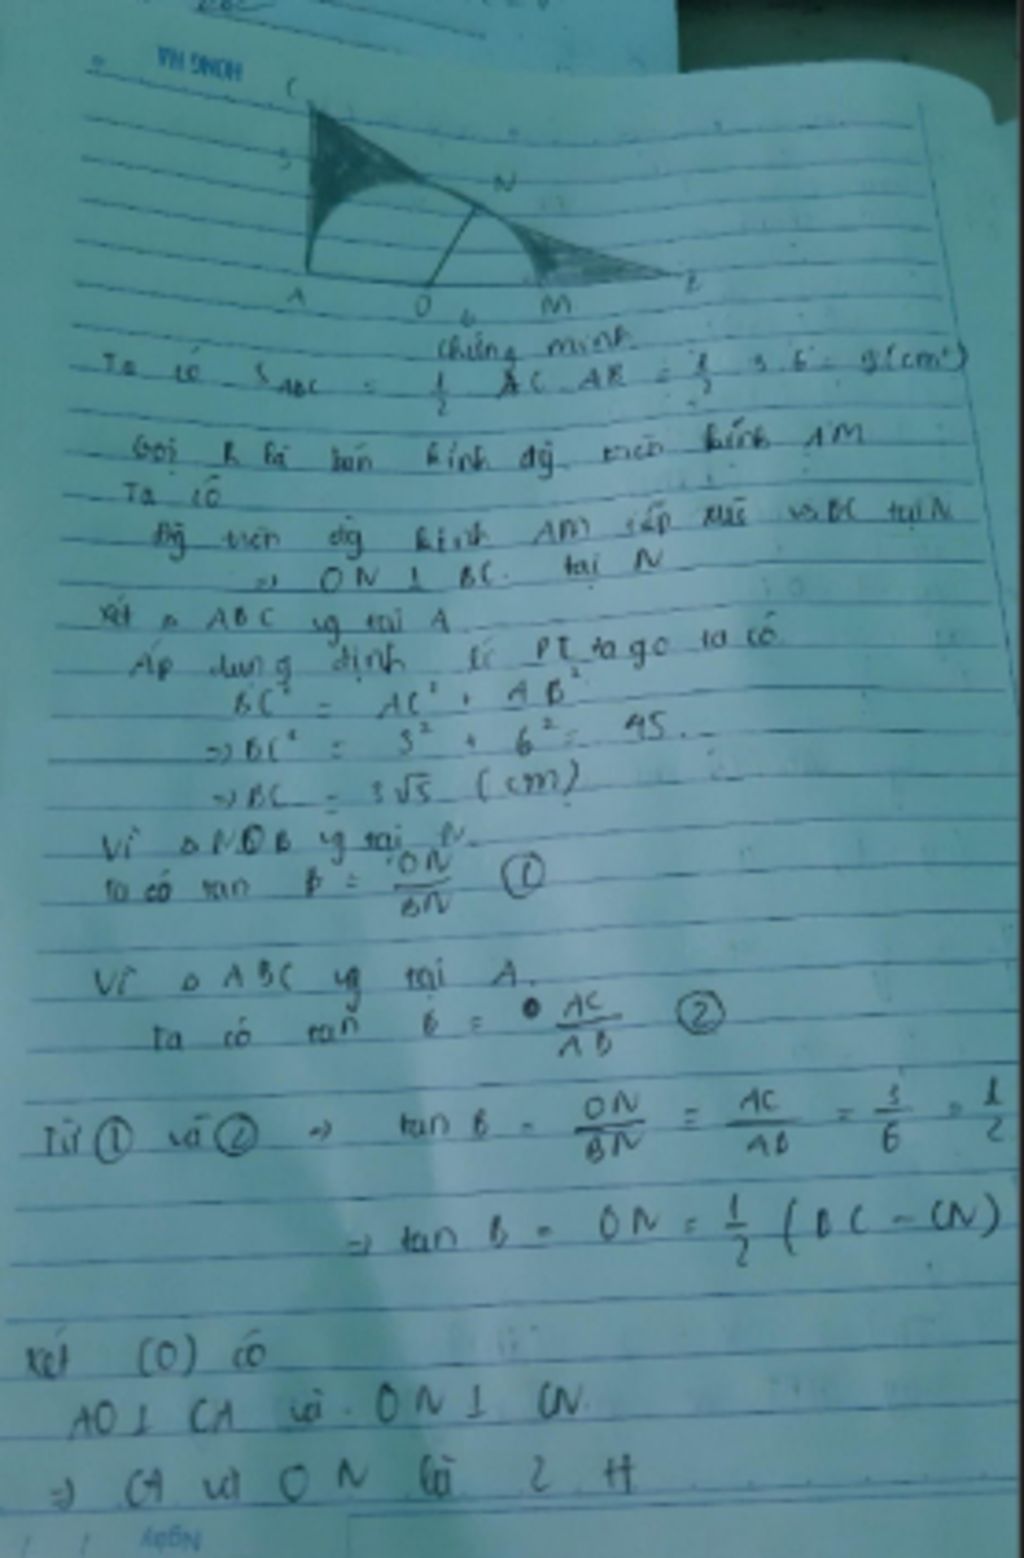 HỒNG HÀ
C
3
N
A
O
6
M
B
Chứng minh
Ta có S ABC = 1/2 AC . AB = 1/2 3.6 = 9 (cm²)
Gọi R là bán kính đg tròn kính AM
Ta có
Đg tròn đg kính AM tiếp xúc vs BC tại N
=> ON ⊥ BC. tại N
Xét △ ABC vg tại A
Áp dụng định lí PI ta go ta có
BC² = AC² + AB²
=> BC² = 3² + 6² = 45.
=> BC = 3√5 (cm)
Vì △ NOB vg tại N.
ta có tan B = ON/BN ①
Vì △ ABC vg tại A.
Ta có tan B = AC/AB ②
Từ ① và ② => tan B = ON/BN = AC/AB = 3/6 = 1/2
=> tan B = ON = 1/2 (BC - CN)
Xét (O) có
AO ⊥ CA và ON ⊥ CN.
=> CA và ON là 2 tt
Ngày